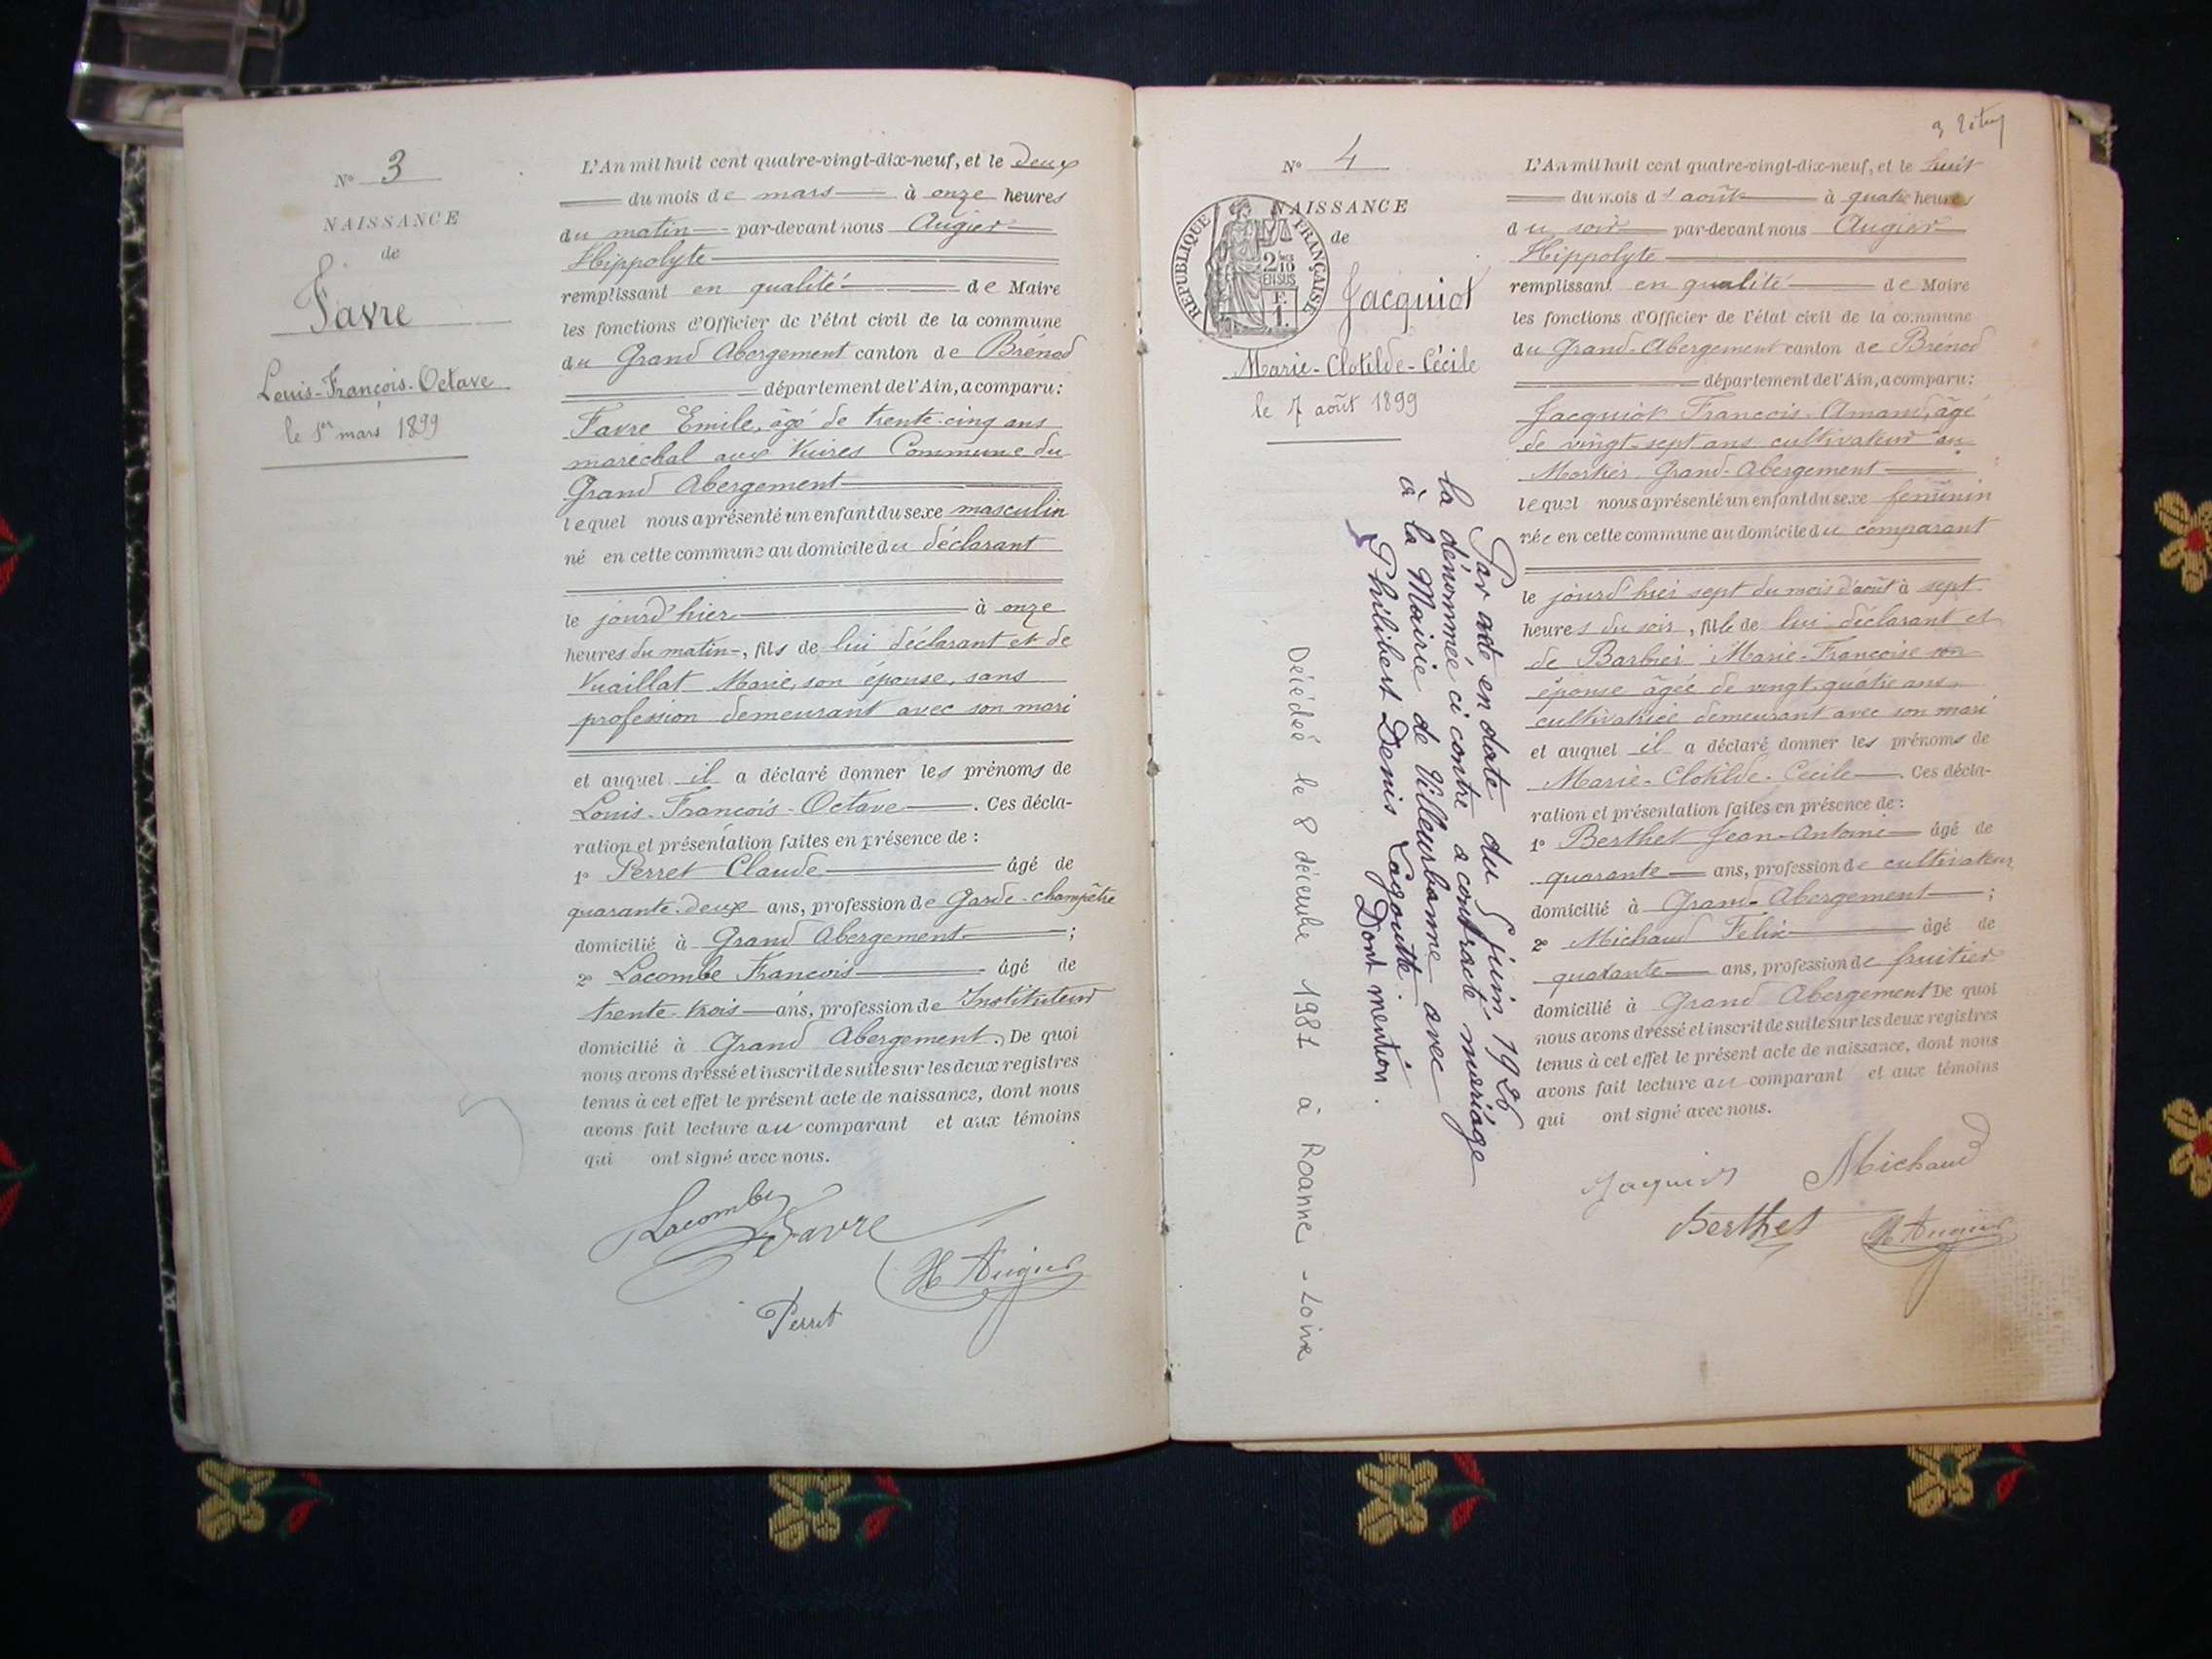 N° 3
NAISSANCE
de
Favre
Louis-François-Octave
le 1er mars 1899
L'An mil huit cent quatre-vingt-dix-neuf, et le deux
du mois de mars à onze heures
du matin par-devant nous Augier
Hippolyte
remplissant en qualité de Maire
les fonctions d'Officier de l'état civil de la commune
du Grand Abergement canton de Brénod
département de l'Ain, a comparu :
Favre Emile, âgé de trente-cinq ans
maréchal aux Vuires Commune du
Grand Abergement
lequel nous a présenté un enfant du sexe masculin
né en cette commune au domicile du déclarant
le jourd'hier à onze
heures du matin, fils de lui déclarant et de
Vuaillat Marie, son épouse, sans
profession demeurant avec son mari
et auquel il a déclaré donner les prénoms de
Louis-François-Octave. Ces décla-
ration et présentation faites en présence de :
1° Perret Claude âgé de
quarante-deux ans, profession de Garde-champêtre
domicilié à Grand Abergement ;
2° Lacombe François âgé de
trente-trois ans, profession de Instituteur
domicilié à Grand Abergement. De quoi
nous avons dressé et inscrit de suite sur les deux registres
tenus à cet effet le présent acte de naissance, dont nous
avons fait lecture au comparant et aux témoins
qui ont signé avec nous.
Lacombe
Favre
H Augier
Perret
3
N° 4
NAISSANCE
de
REPUBLIQUE FRANÇAISE
2/10
EN SUS
1 F.
Jacquiot
Marie-Clotilde-Cécile
le 7 août 1899
Par acte en date du 5 juin 1926
la dénommée ci contre a contracté mariage
à la Mairie de Villeurbanne avec
Philibert Denis Lagoutte.
Dont mention.
Décédée le 8 décembre 1981 à Roanne - Loire
L'An mil huit cent quatre-vingt-dix-neuf, et le huit
du mois d'août à quatre heures
du soir par-devant nous Augier
Hippolyte
remplissant en qualité de Maire
les fonctions d'Officier de l'état civil de la commune
du Grand-Abergement canton de Brénod
département de l'Ain, a comparu :
Jacquiot François-Amand, âgé
de vingt-sept ans cultivateur au
Mortier Grand-Abergement
lequel nous a présenté un enfant du sexe féminin
née en cette commune au domicile du comparant
le jourd'hier sept du mois d'août à sept
heures du soir, fille de lui déclarant et
de Barbier Marie-Françoise son
épouse âgée de vingt-quatre ans,
cultivatrice demeurant avec son mari
et auquel il a déclaré donner les prénoms de
Marie-Clotilde-Cécile. Ces décla-
ration et présentation faites en présence de :
1° Berthet Jean-Antoine âgé de
quarante ans, profession de cultivateur
domicilié à Grand-Abergement ;
2° Michaud Félix âgé de
quarante ans, profession de fruitier
domicilié à Grand Abergement De quoi
nous avons dressé et inscrit de suite sur les deux registres
tenus à cet effet le présent acte de naissance, dont nous
avons fait lecture au comparant et aux témoins
qui ont signé avec nous.
Jacquiot
Michaud
Berthet
H Augier